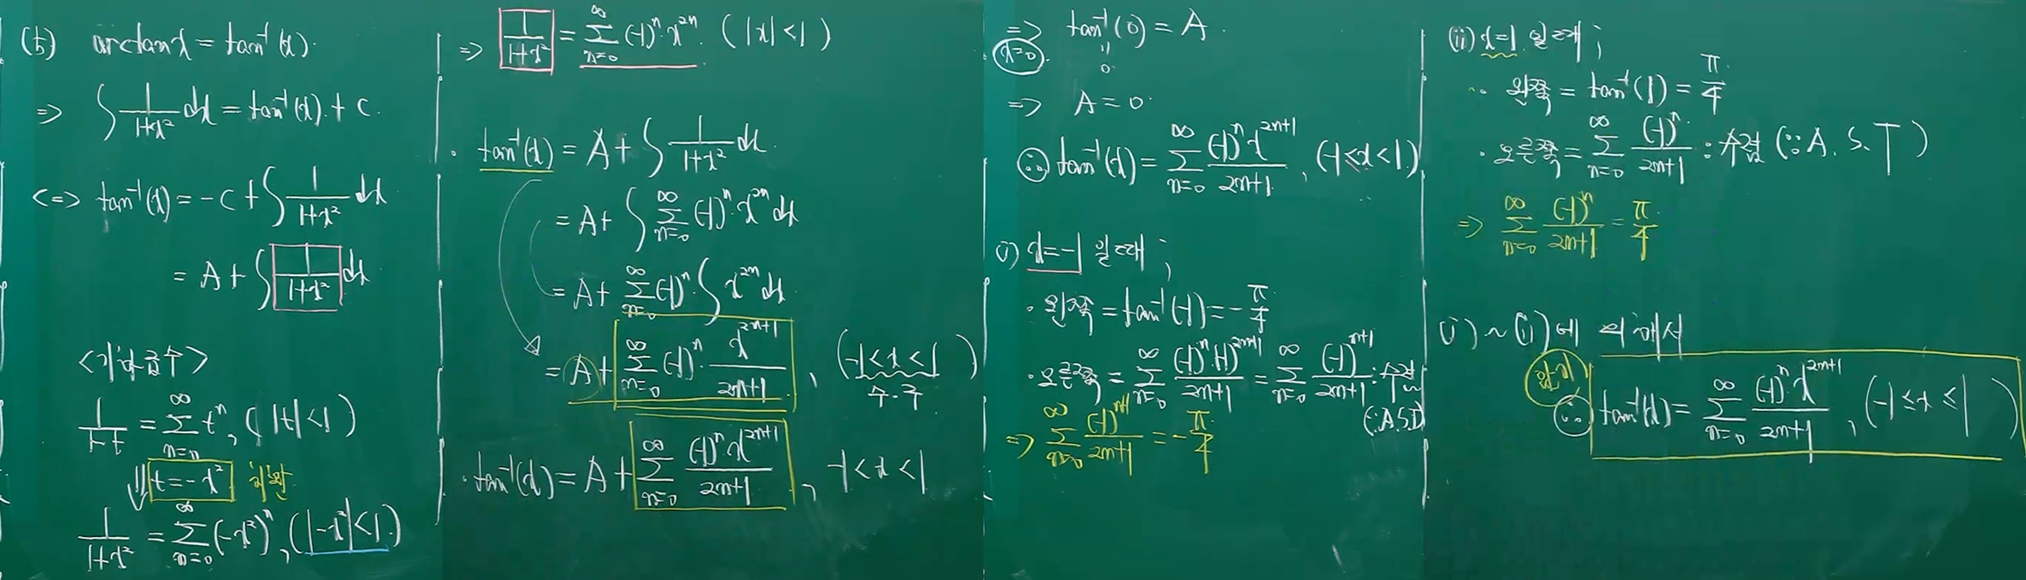 (b) arctan x = tan⁻¹(x).
⇒ ∫ 1/(1+x²) dx = tan⁻¹(x) + C.
⇔ tan⁻¹(x) = -C + ∫ 1/(1+x²) dx
= A + ∫ 1/(1+x²) dx
<기하급수>
1/(1-t) = ∑_{n=0}^{∞} tⁿ, (|t|<1)
⇓ t=-x² 치환
1/(1+x²) = ∑_{n=0}^{∞} (-x²)ⁿ, (|-x²|<1)
⇒ 1/(1+x²) = ∑_{n=0}^{∞} (-1)ⁿ·x²ⁿ. (|x|<1)
· tan⁻¹(x) = A + ∫ 1/(1+x²) dx.
= A + ∫ ∑_{n=0}^{∞} (-1)ⁿ·x²ⁿ dx
= A + ∑_{n=0}^{∞} (-1)ⁿ·∫ x²ⁿ dx.
= A + ∑_{n=0}^{∞} (-1)ⁿ·x²ⁿ⁺¹/(2n+1), (-1<x<1)
수.구
· tan⁻¹(x) = A + ∑_{n=0}^{∞} (-1)ⁿ·x²ⁿ⁺¹/(2n+1), -1<x<1
⇒ tan⁻¹(0) = A.
x=0 = 0
⇒ A = 0.
∴ tan⁻¹(x) = ∑_{n=0}^{∞} (-1)ⁿx²ⁿ⁺¹/(2n+1), (-1<x<1)
(i) x=-1 일 때 ;
· 왼쪽 = tan⁻¹(-1) = -π/4
· 오른쪽 = ∑_{n=0}^{∞} (-1)ⁿ·(-1)²ⁿ⁺¹/(2n+1) = ∑_{n=0}^{∞} (-1)ⁿ⁺¹/(2n+1) : 수렴
(∵A.S.T)
⇒ ∑_{n=0}^{∞} (-1)ⁿ⁺¹/(2n+1) = -π/4
(ii) x=1 일 때 ;
· 왼쪽 = tan⁻¹(1) = π/4
· 오른쪽 = ∑_{n=0}^{∞} (-1)ⁿ/(2n+1) : 수렴 (∵A.S.T)
⇒ ∑_{n=0}^{∞} (-1)ⁿ/(2n+1) = π/4
(i) ~ (ii) 에 의해서
∴ tan⁻¹(x) = ∑_{n=0}^{∞} (-1)ⁿ·x²ⁿ⁺¹/(2n+1), (-1≤x≤1)